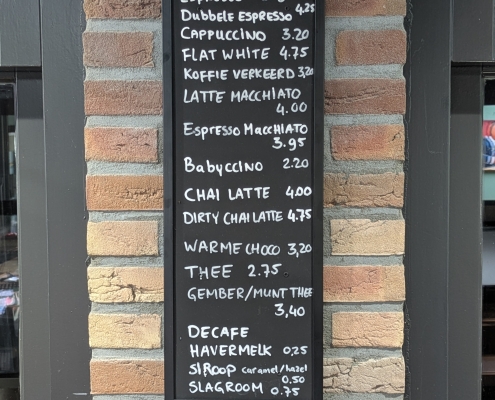 DUBBELE ESPRESSO 4,25
CAPPUCCINO 3.20
FLAT WHITE 4.75
KOFFIE VERKEERD 3,20
LATTE MACCHIATO
4.00
ESPRESSO MACCHIATO
3.95
BABYCCINO 2.20
CHAI LATTE 4.00
DIRTY CHAI LATTE 4.75
WARME CHOCO 3,20
THEE 2.75
GEMBER/MUNT THEE
3,40
DECAFE
HAVERMELK 0,25
SIROOP caramel/hazel
0.50
SLAGROOM 0.75